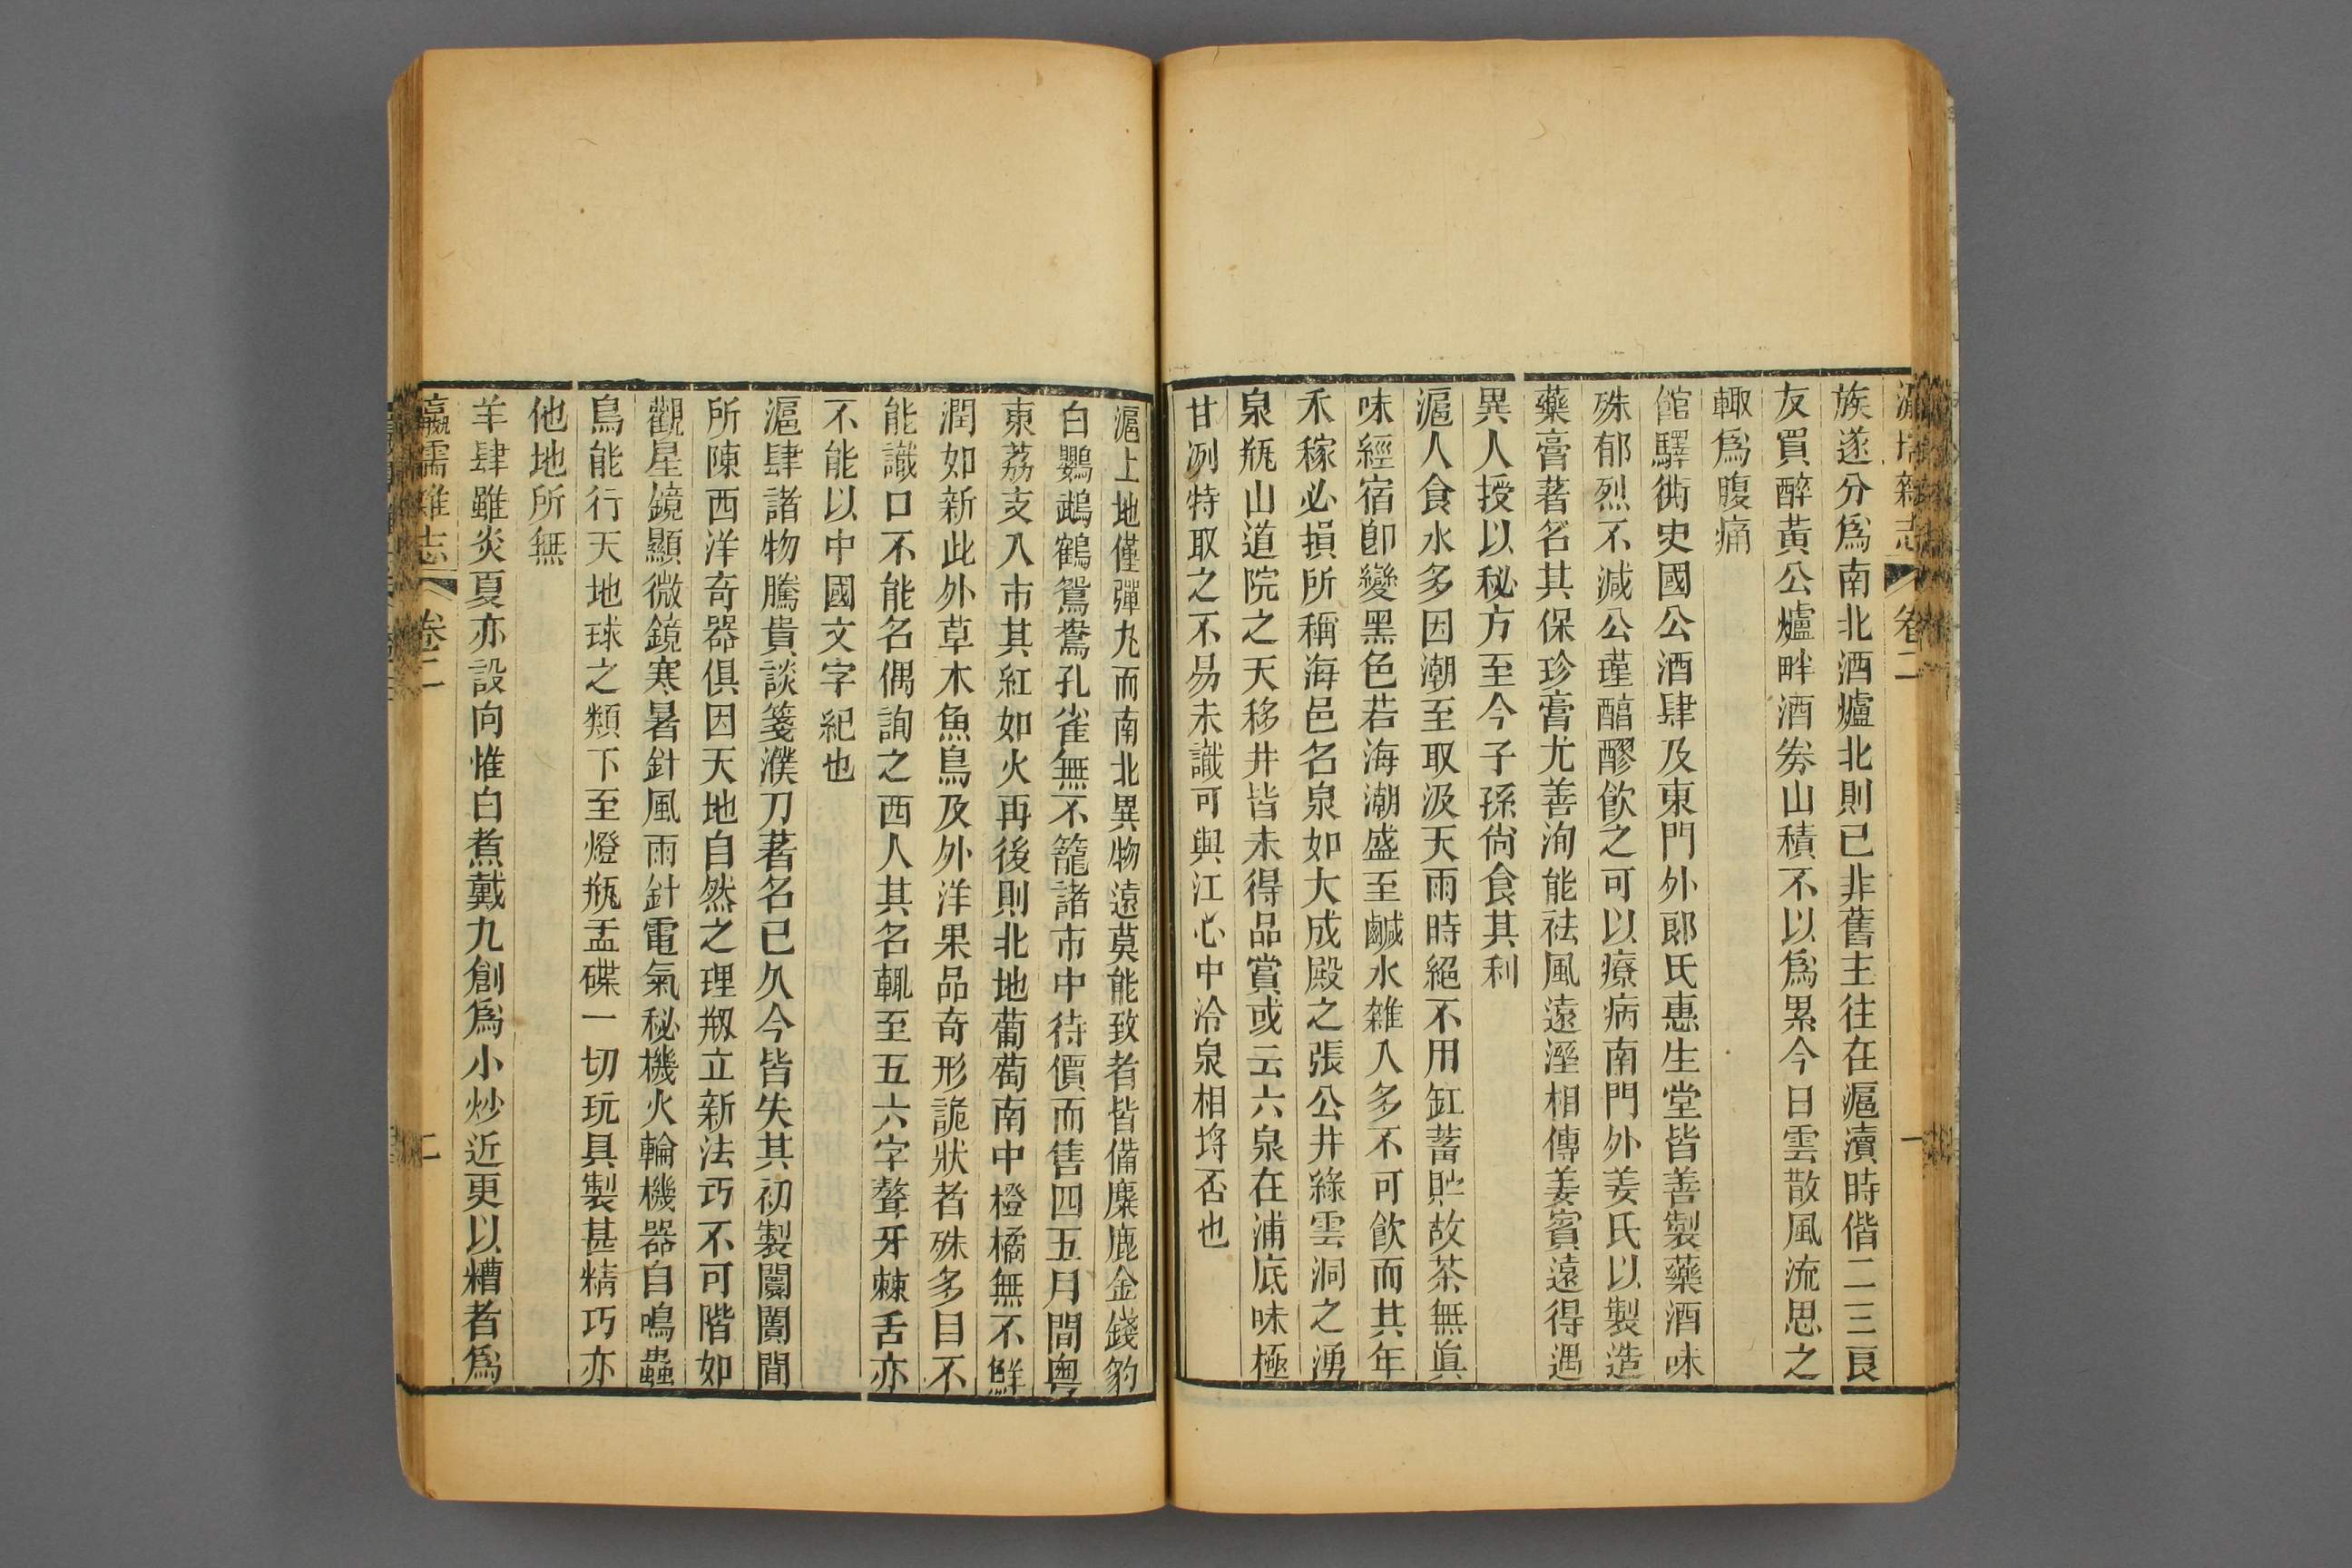 瀛壖雜志 卷二 一
族遂分爲南北酒爐北則已非舊主往在滬瀆時偕二三良
友買醉黃公爐畔酒券山積不以爲累今日雲散風流思之
輙爲腹痛
館驛衖史國公酒肆及東門外郎氏惠生堂皆善製藥酒味
殊郁烈不減公瑾醕醪飮之可以療病南門外姜氏以製造
藥膏著名其保珍膏尤善洵能祛風遠溼相傳姜賓遠得遇
異人授以秘方至今子孫尙食其利
滬人食水多因潮至取汲天雨時絕不用缸蓄貯故茶無眞
味經宿卽變黑色若海潮盛至鹹水雜入多不可飮而其年
禾稼必損所稱海邑名泉如大成殿之張公井綠雲洞之湧
泉瓶山道院之天移井皆未得品賞或云六泉在浦底味極
甘洌特取之不易未識可與江心中泠泉相埒否也
滬上地僅彈丸而南北異物遠莫能致者皆備麋鹿金錢豹
白鸚鵡鶴鴛鴦孔雀無不籠諸市中待價而售四五月間粵
東荔支入市其紅如火再後則北地葡萄南中橙橘無不鮮
潤如新此外草木魚鳥及外洋果品奇形詭狀者殊多目不
能識口不能名偶詢之西人其名輒至五六字聱牙棘舌亦
不能以中國文字紀也
滬肆諸物騰貴談箋濮刀著名已久今皆失其初製闤闠間
所陳西洋奇器俱因天地自然之理剏立新法巧不可階如
觀星鏡顯微鏡寒暑針風雨針電氣秘機火輪機器自鳴蟲
鳥能行天地球之類下至燈瓶盂碟一切玩具製甚精巧亦
他地所無
羊肆雖炎夏亦設向惟白煮戴九創爲小炒近更以糟者爲
瀛壖雜志 卷二 二